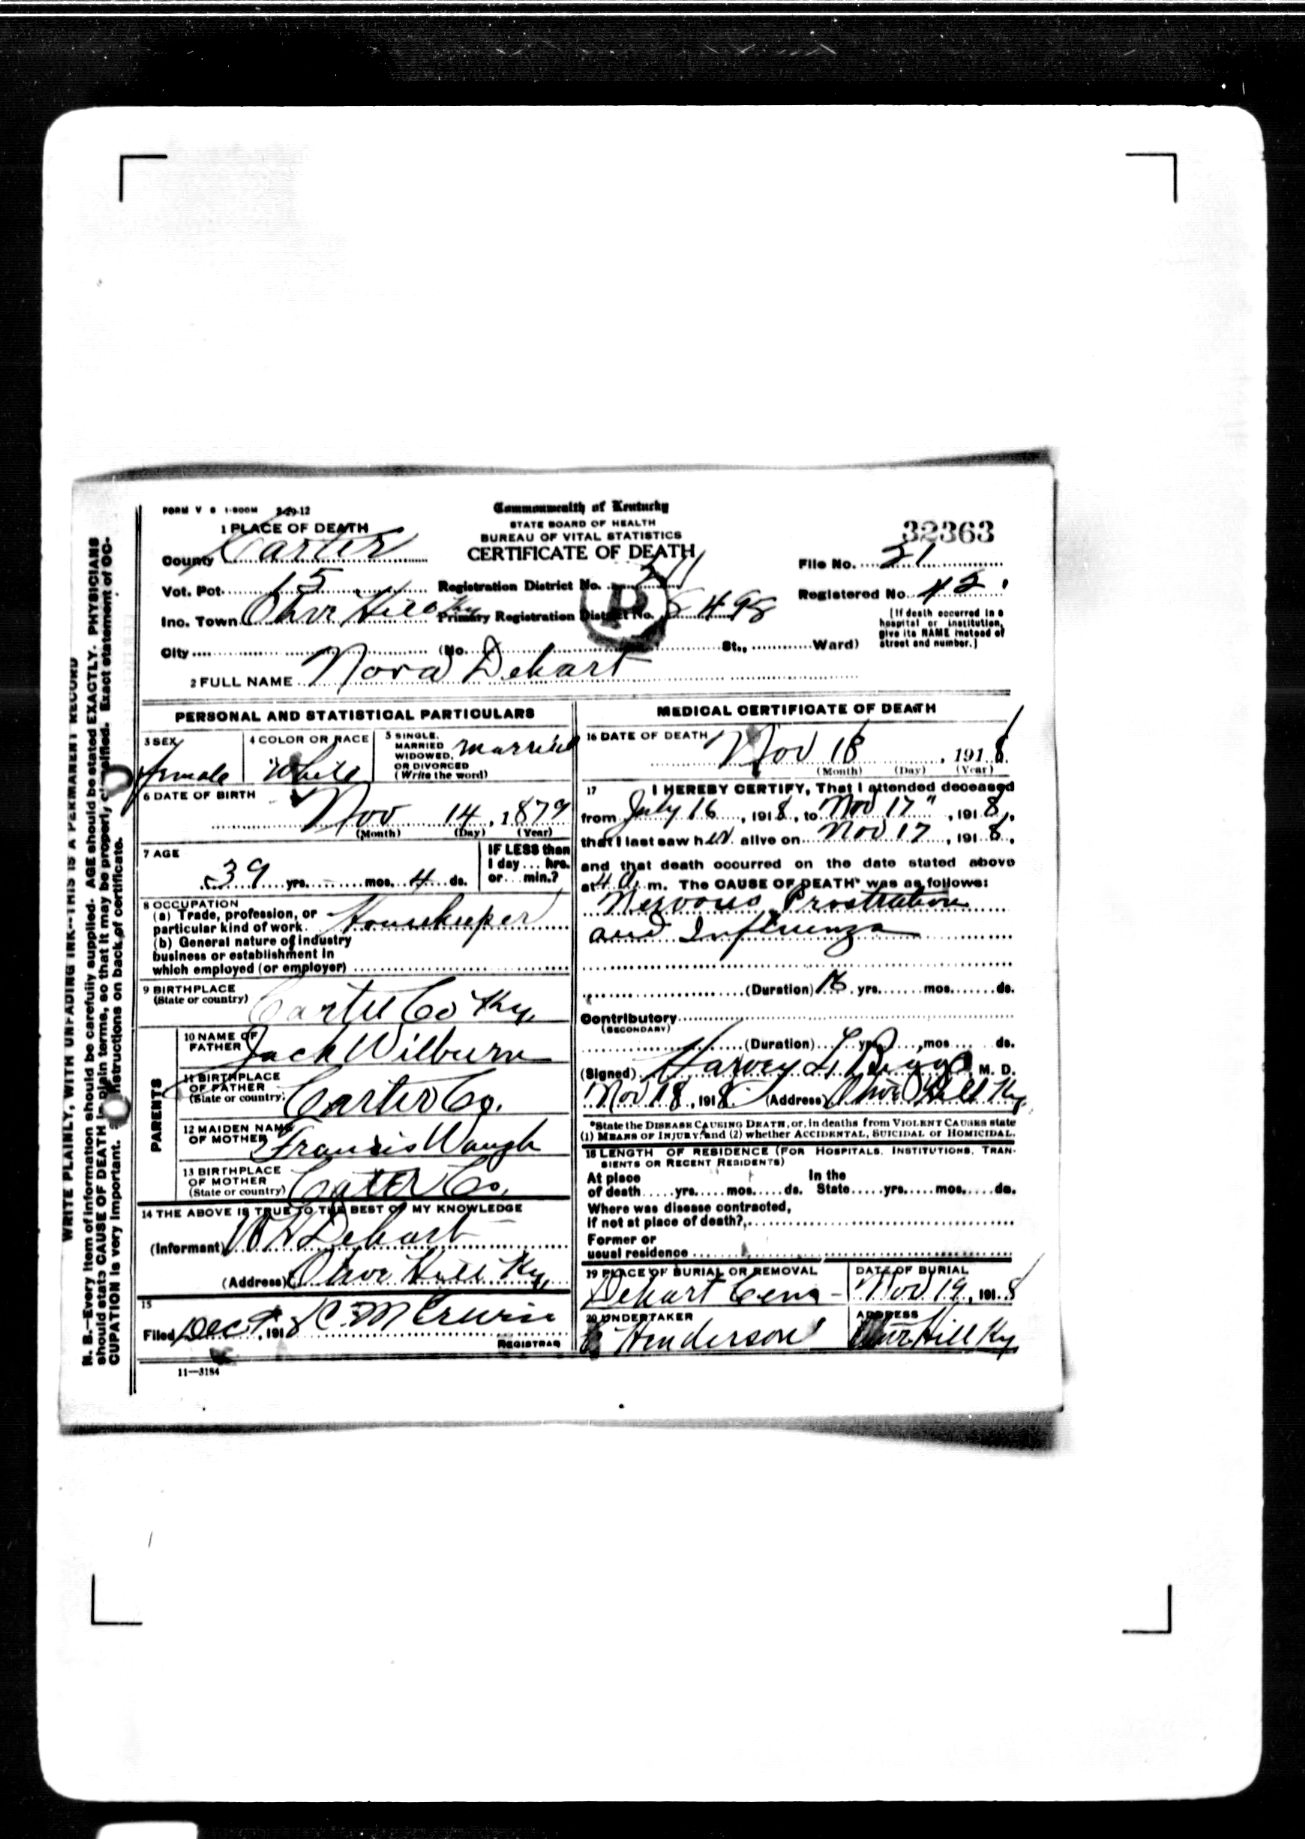 FORM V S 1-500M 2-29-12
Commonwealth of Kentucky
STATE BOARD OF HEALTH
BUREAU OF VITAL STATISTICS
CERTIFICATE OF DEATH
32363
1 PLACE OF DEATH
County Carter
File No. 21
Vot. Pct. 15
Registration District No.
Registered No. 42
Inc. Town Olive Hill Ky
Primary Registration District No. 8498
B
[If death occurred in a
hospital or institution,
give its NAME instead of
street and number.]
City (No. St., Ward)
2 FULL NAME Nora Dehart
PERSONAL AND STATISTICAL PARTICULARS
3 SEX
female
4 COLOR OR RACE
White
5 SINGLE,
MARRIED
WIDOWED,
OR DIVORCED
(Write the word)
married
6 DATE OF BIRTH
Nov 14, 1879
(Month) (Day) (Year)
7 AGE
39 yrs. - mos. 4 ds.
IF LESS than
1 day... hrs.
or... min.?
8 OCCUPATION
(a) Trade, profession, or
particular kind of work. Housekeeper
(b) General nature of industry
business or establishment in
which employed (or employer)
9 BIRTHPLACE
(State or country) Carter Co Ky.
PARENTS
10 NAME OF
FATHER Jack Wilburn
11 BIRTHPLACE
OF FATHER
(State or country) Carter Co.
12 MAIDEN NAME
OF MOTHER Francis Waugh
13 BIRTHPLACE
OF MOTHER
(State or country) Cater Co.
14 THE ABOVE IS TRUE TO THE BEST OF MY KNOWLEDGE
(Informant) Dehart
(Address) Olive Hill Ky,
15
Filed Dec 1918
REGISTRAR
11—3184
MEDICAL CERTIFICATE OF DEATH
16 DATE OF DEATH
Nov 18, 1918
(Month) (Day) (Year)
17 I HEREBY CERTIFY, That I attended deceased
from July 16, 1918, to Nov 17", 1918,
that I last saw her alive on Nov 17, 1918,
and that death occurred on the date stated above
at 4 a. m. The CAUSE OF DEATH* was as follows:
Nervous Prostration
and Influenza
(Duration) yrs. mos. ds.
Contributory
(SECONDARY)
(Duration) yrs. mos. ds.
(Signed) Harvey L M. D.
Nov 18, 1918 (Address) Olive Hill Ky
*State the DISEASE CAUSING DEATH, or, in deaths from VIOLENT CAUSES state
(1) MEANS OF INJURY; and (2) whether ACCIDENTAL, SUICIDAL or HOMICIDAL.
18 LENGTH OF RESIDENCE (FOR HOSPITALS, INSTITUTIONS, TRAN-
SIENTS OR RECENT RESIDENTS)
At place In the
of death yrs. mos. ds. State yrs. mos. ds.
Where was disease contracted,
If not at place of death?
Former or
usual residence
19 PLACE OF BURIAL OR REMOVAL
Dehart Cem
DATE OF BURIAL
Nov 19, 1918
20 UNDERTAKER
Henderson
ADDRESS
Olive Hill Ky
WRITE PLAINLY, WITH UNFADING INK—THIS IS A PERMANENT RECORD
N. B.—Every item of information should be carefully supplied. AGE should be stated EXACTLY. PHYSICIANS
should state CAUSE OF DEATH in plain terms, so that it may be properly classified. Exact statement of OC-
CUPATION is very important. See instructions on back of certificate.